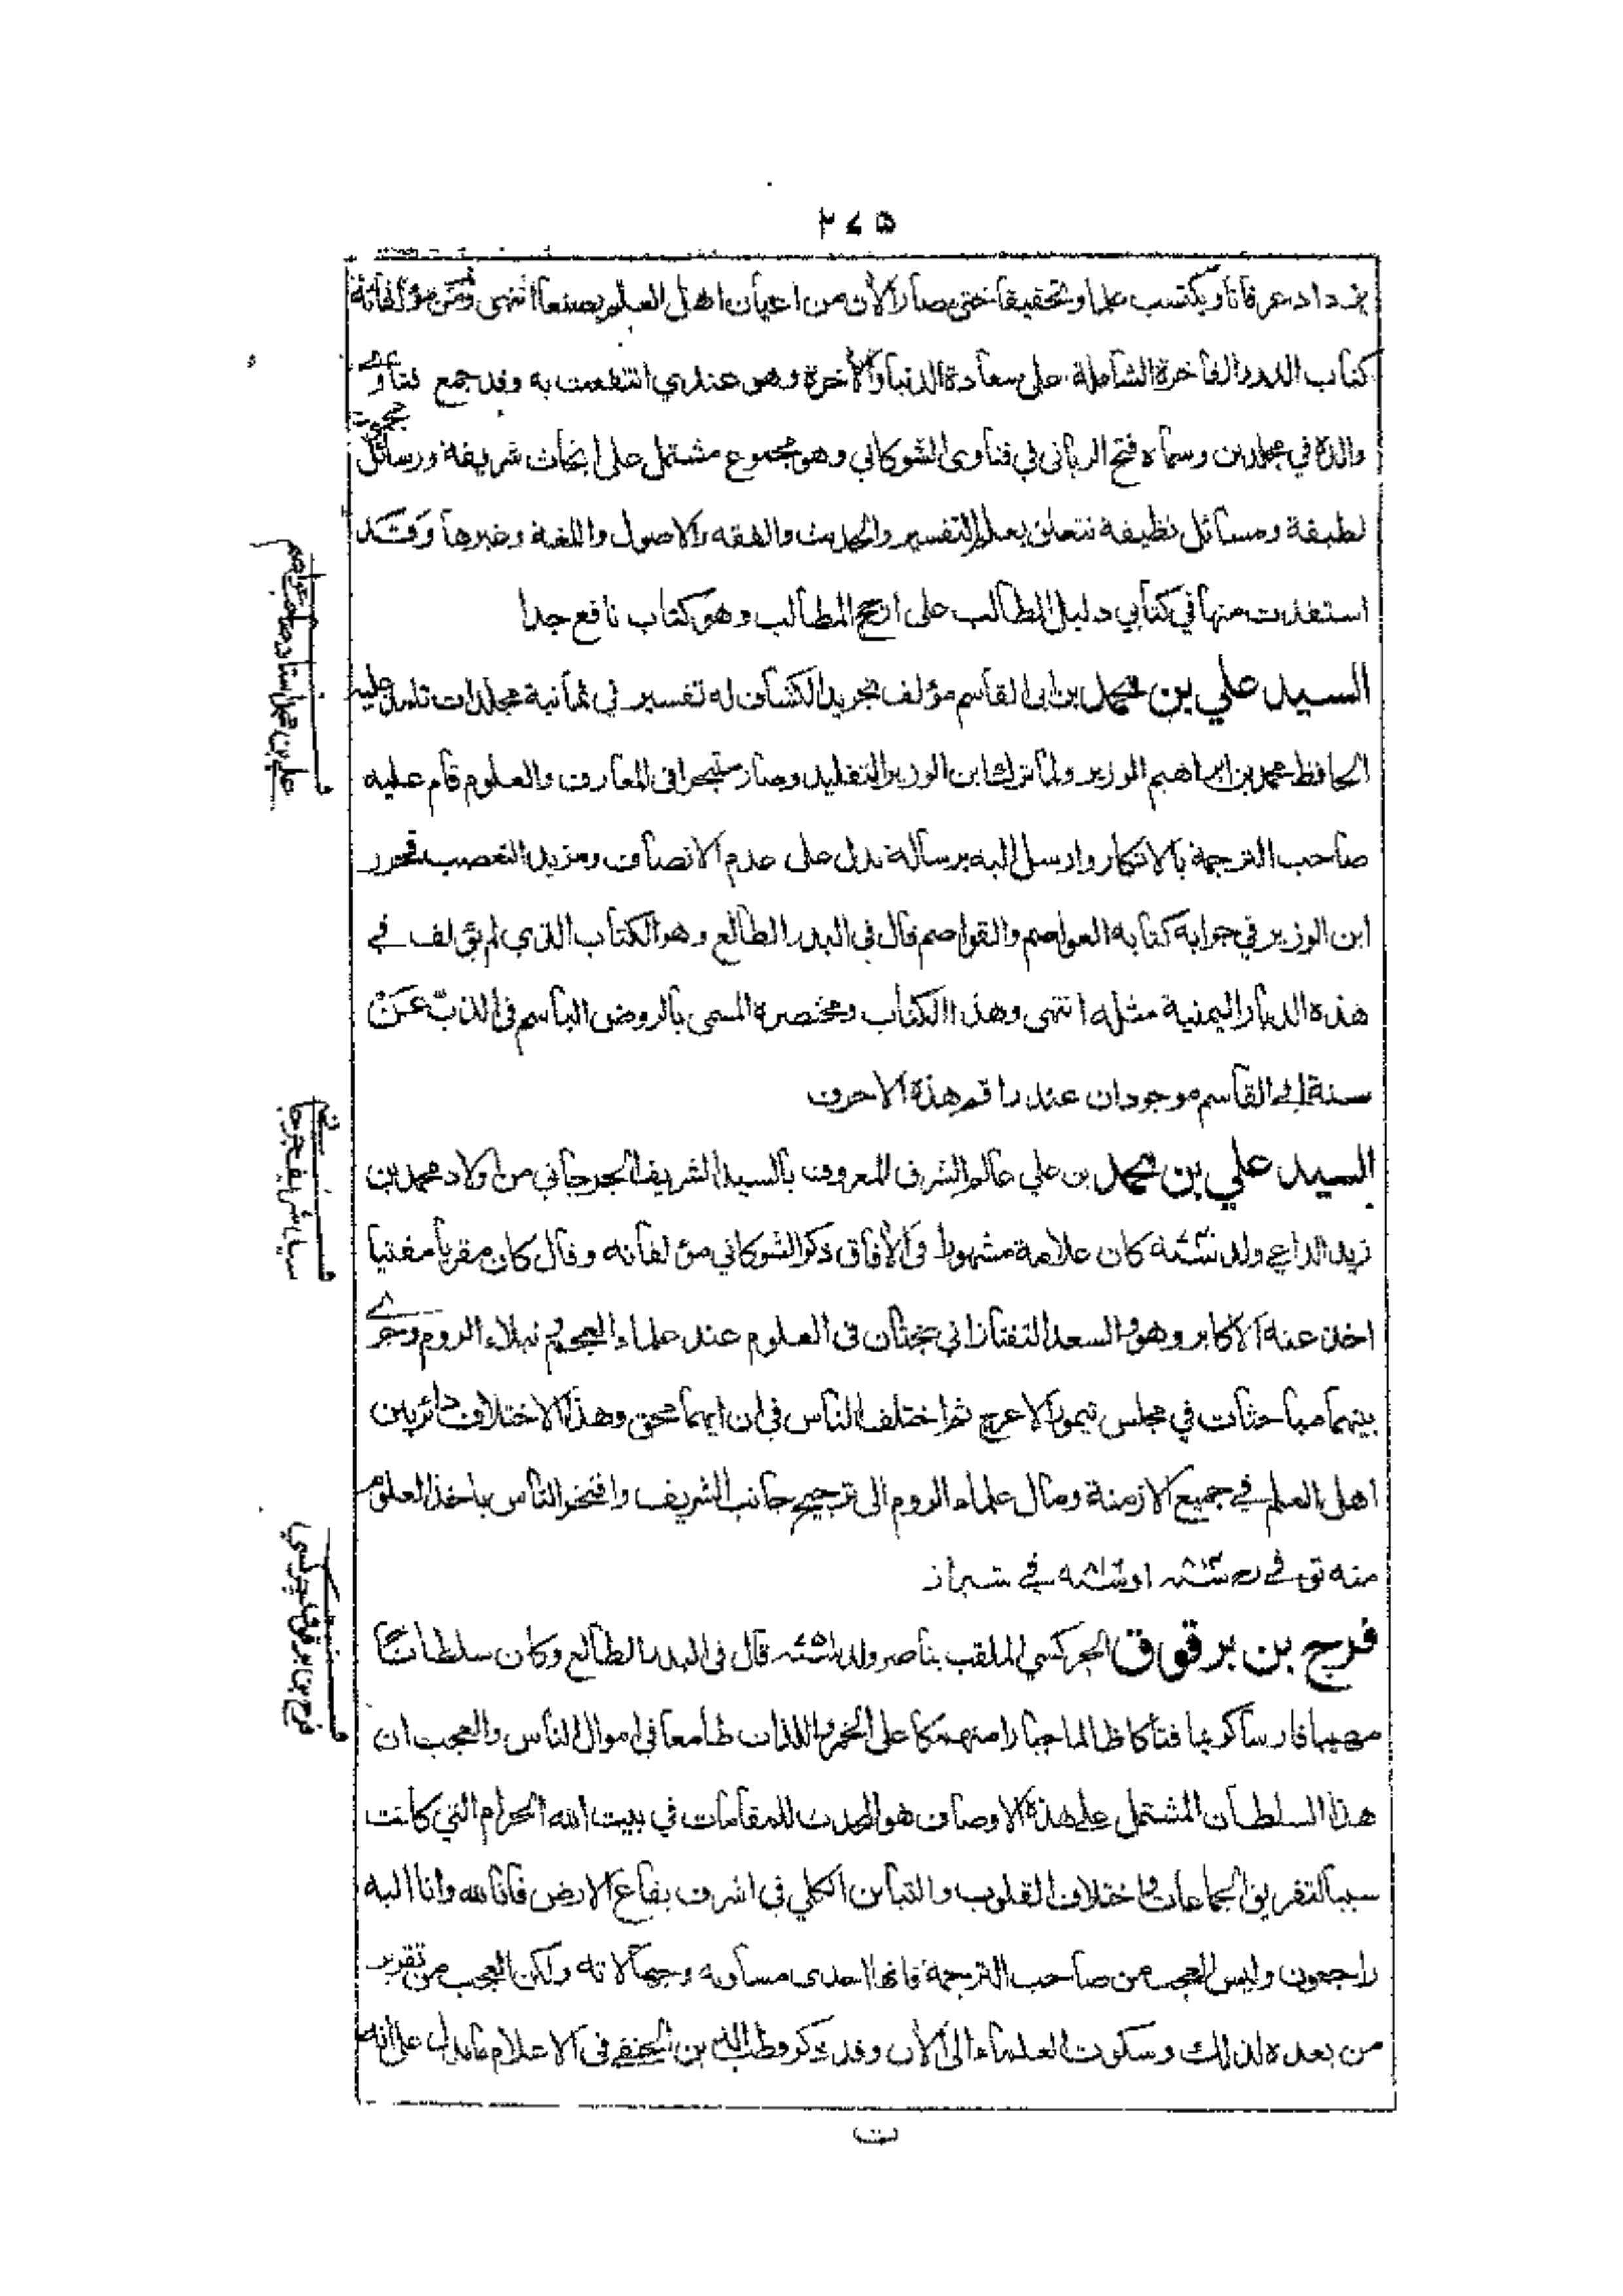 ٢٧٥
يزداد عرفانا ويكتسب علما وتحقيقا حتى صار الآن من اعيان اهل العلم بصنعا انتهى ومن مؤلفاته
كتاب الدرر الفاخرة الشاملة على سعادة الدنيا والآخرة وهو عندي انتفعت به وقد جمع فتاوے
والده في مجلدين وسماه فتح الرباني في فتاوى الشوكاني وهو مجموع مشتمل على ابحاث شريفة ورسائل
لطيفة ومسائل نظيفة تتعلق بعلم التفسير والحديث والفقه والاصول واللغة وغيرها وقد
استفدت منها في كتابي دليل الطالب على ارجح المطالب وهو كتاب نافع جدا
السيد علي بن محمد بن ابى القاسم مؤلف تجريد الكشاف له تفسير في ثمانية مجلدات تلمذ عليه
الحافظ محمد بن ابراهيم الوزير ولما ترك ابن الوزير التقليد وصار متبحرا فى المعارف والعلوم قام عليه
صاحب الترجمة بالانكار وارسل اليه برسالة تدل على عدم الانصاف ومزيد التعصب فحرر
ابن الوزير في جوابه كتابه العواصم والقواصم قال في البدر الطالع وهو الكتاب الذي لم يؤلف في
هذه الديار اليمنية مثله انتهى وهذا الكتاب ومختصره المسمى بالروض الباسم فى الذب عن
سنة ابي القاسم موجودان عند راقم هذه الاحرف
السيد علي بن محمد بن علي عالم الشرق المعروف بالسيد الشريف الجرجاني من اولاد محمد بن
زيد الداعي ولد كان علامة مشهورا فى الآفاق ذكر الشوكاني مؤلفاته وقال كان مقربا مفتيا
اخذ عنه الاكابر وهو والسعد التفتازاني بحثان فى العلوم عند علماء العجم ثم نبلاء الروم وجرے
بينهما مباحثات في مجلس تيمور الاعرج ثم اختلف الناس في ان ايهما محق وهذا الاختلاف دائر بين
اهل العلم في جميع الازمنة ومال علماء الروم الى ترجيح جانب الشريف وافتخر الناس باخذ العلوم
منه توفي في او في شيراز
فرج بن برقوق الجركسي الملقب بناصر ولد قال فى البدر الطالع وكان سلطانا
مهيبا فارسا كريما فتاكا ظالما جبارا منهمكا على الخمر واللذات طامعا في اموال الناس والعجب ان
هذا السلطان المشتمل على هذه الاوصاف هو المحدث للمقامات في بيت الله الحرام التي كانت
سببا لتفريق الجماعات واختلاف القلوب والتباين الكلي في اشرف بقاع الارض فانا لله وانا اليه
راجعون وليس العجب من صاحب الترجمة فانها احدى مساويه وجهالاته ولكن العجب من تقرير
من بعده لذلك وسكوت العلماء الى الآن وقد ذكر قطب الدين الحنفي فى الاعلام ما يدل على انه
علي بن محمد استاد صاحب عواصم
سيد شريف جرجاني
فرج بن برقوق جركسي